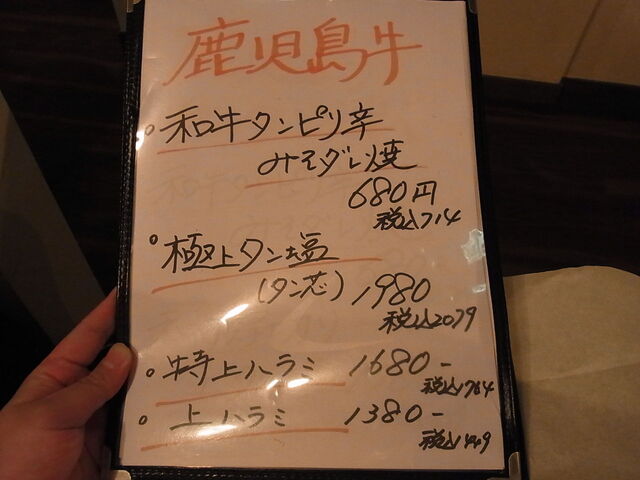 鹿児島牛
和牛タンピリ辛
みそダレ焼
680円
税込714
極上タン塩
(タン芯) 1980
税込2079
特上ハラミ 1680-
税込1764
上ハラミ 1380-
税込1449